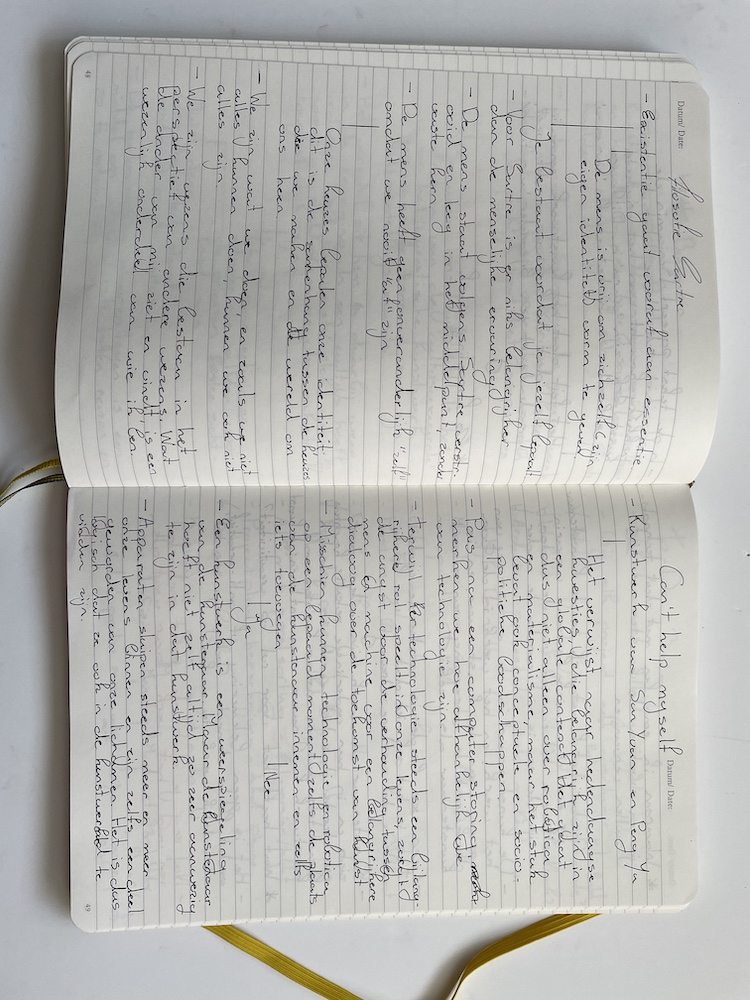 Datum/ Date:
Filosofie Sartre
- Existentie gaat vooraf aan essentie
De mens is vrij om zichzelf (zijn
eigen identiteit) vorm te geven
Je bestaat voordat je jezelf bepaalt
- Voor Sartre is er niks belangrijker
dan de menselijke ervaring
- De mens staat volgens Sartre verstr-
ooid en leeg in het middelpunt, zonder
vaste kern.
- De mens heeft geen onveranderlijk "zelf"
omdat we nooit "af" zijn
Onze keuzes bepalen onze identiteit;
dit is de samenhang tussen de keuzes
die we maken en de wereld om
ons heen
- We zijn wat we doen, en zoals we niet
alles kunnen doen, kunnen we ook niet
alles zijn
- We zijn wezens die bestaan in het
perspectief van andere wezens. Wat
de ander van mij ziet en vindt, is een
wezenlijk onderdeel van wie ik ben.
48
Can't help myself
Datum/ Date:
- Kunstwerk van Sun Yuan en Peng Yu
Het verwijst naar hedendaagse
kwesties, die belangrijk zijn in
een globale context. Het gaat
dus niet alleen over robotica
en materialisme, maar het stuk
bevat ook conceptuele en socio-
politieke boodschappen.
- Pas na een computer storing
merken we hoe afhankelijk we
van technologie zijn.
- Terwijl technologie steeds een bijlang-
rijkere rol speelt in onze levens, zorgt
de angst voor de verhouding tussen
mens en machine voor een belangrijkere
dialoog over de toekomst van kunst
- Misschien kunnen technologie en robotica
op een bepaald moment zelfs de plaats
van de kunstenaar innemen en zelfs
iets toevoegen
Ja
Nee
- Een kunstwerk is een weerspiegeling
van de kunstenaar. Maar de kunstenaar
hoeft niet zelf altijd zo zeer aanwezig
te zijn in dat kunstwerk
- Apparaten sluipen steeds meer en meer
onze levens binnen en zijn zelfs een deel
geworden van onze lichamen. Het is dus
logisch dat ze ook in de kunstwereld te
vinden zijn.
49